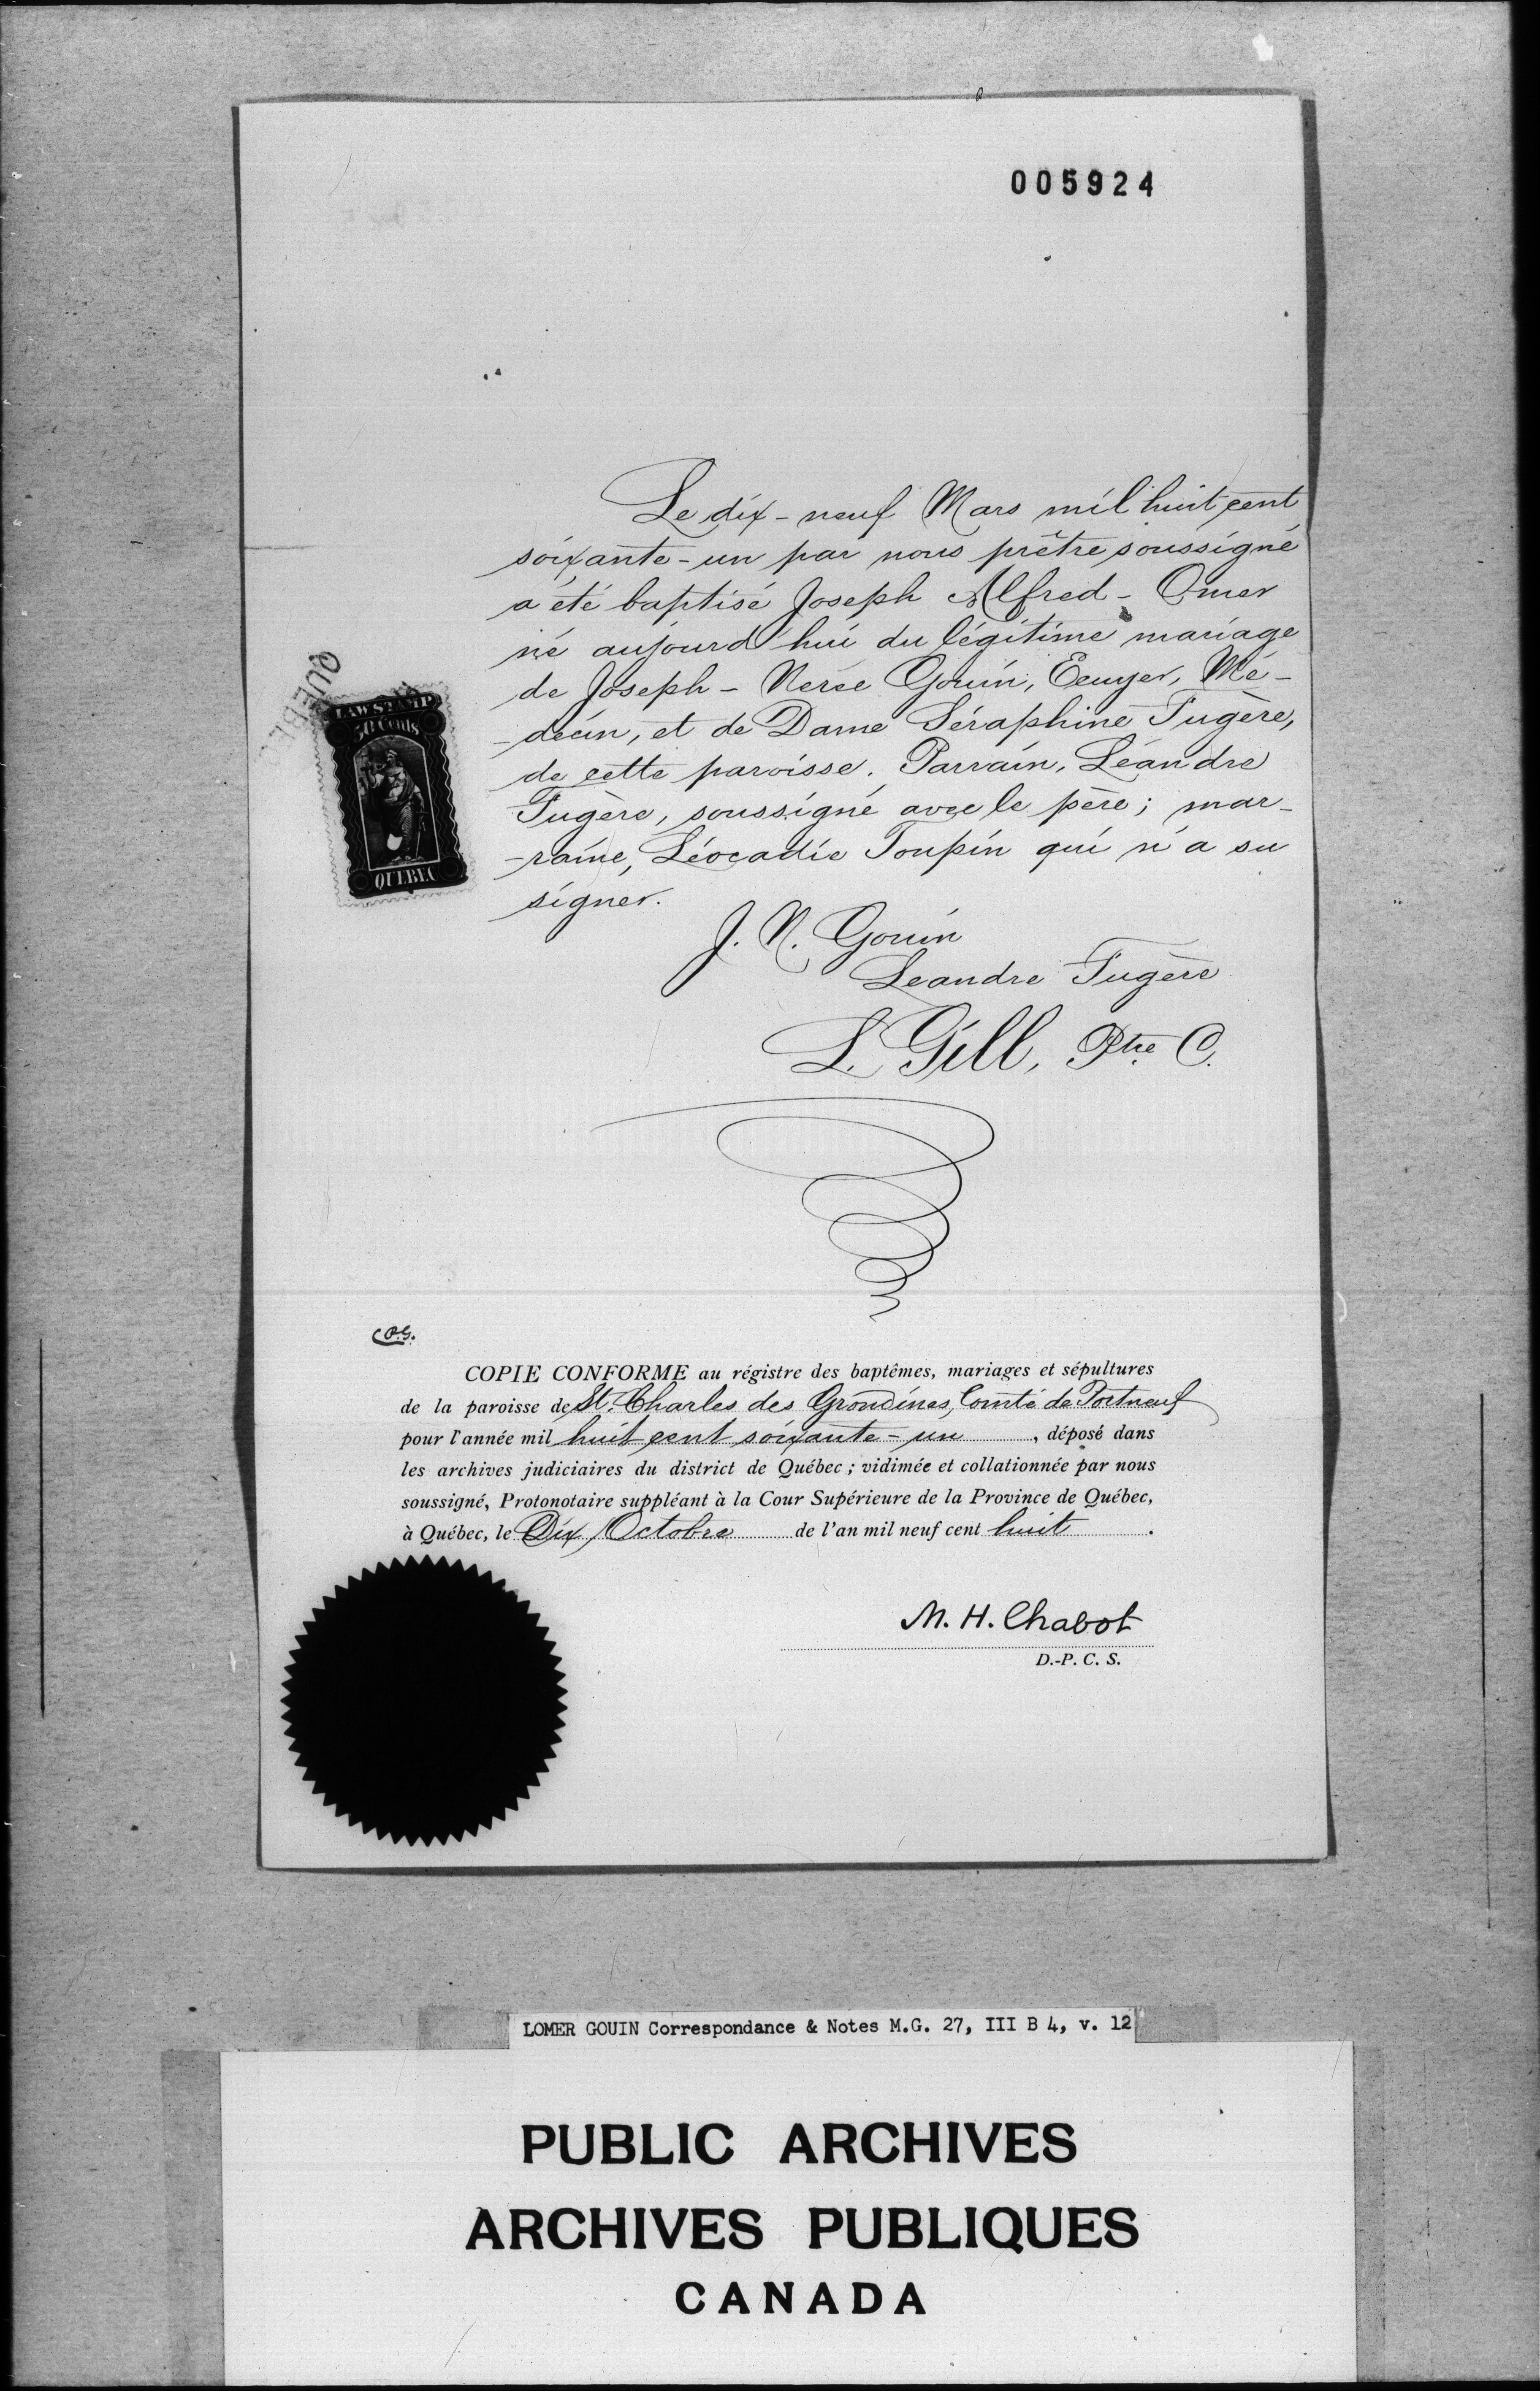 005924
Le dix-neuf Mars mil huit cent
soixante-un par nous prêtre soussigné
a été baptisé Joseph Alfred-Omer
né aujourd'hui du légitime mariage
de Joseph-Nerée Gouin, Ecuyer, Mé-
-decin, et de Dame Séraphine Fugère,
de cette paroisse. Parrain, Léandre
Fugère, soussigné avec le père; mar-
-raine, Léocadie Toupin qui n'a su
signer.
J. N. Gouin
Leandre Fugère
L. Gill, Ptre C.
QUEBEC
LAW STAMP
30 Cents
QUEBEC
C.P.G.
COPIE CONFORME au régistre des baptêmes, mariages et sépultures
de la paroisse de St. Charles des Grondines, Comté de Portneuf
pour l'année mil huit cent soixante-un, déposé dans
les archives judiciaires du district de Québec; vidimée et collationnée par nous
soussigné, Protonotaire suppléant à la Cour Supérieure de la Province de Québec,
à Québec, le Dix Octobre de l'an mil neuf cent huit.
M. H. Chabot
D.-P. C. S.
LOMER GOUIN Correspondance & Notes M.G. 27, III B 4, v. 12
PUBLIC ARCHIVES
ARCHIVES PUBLIQUES
CANADA